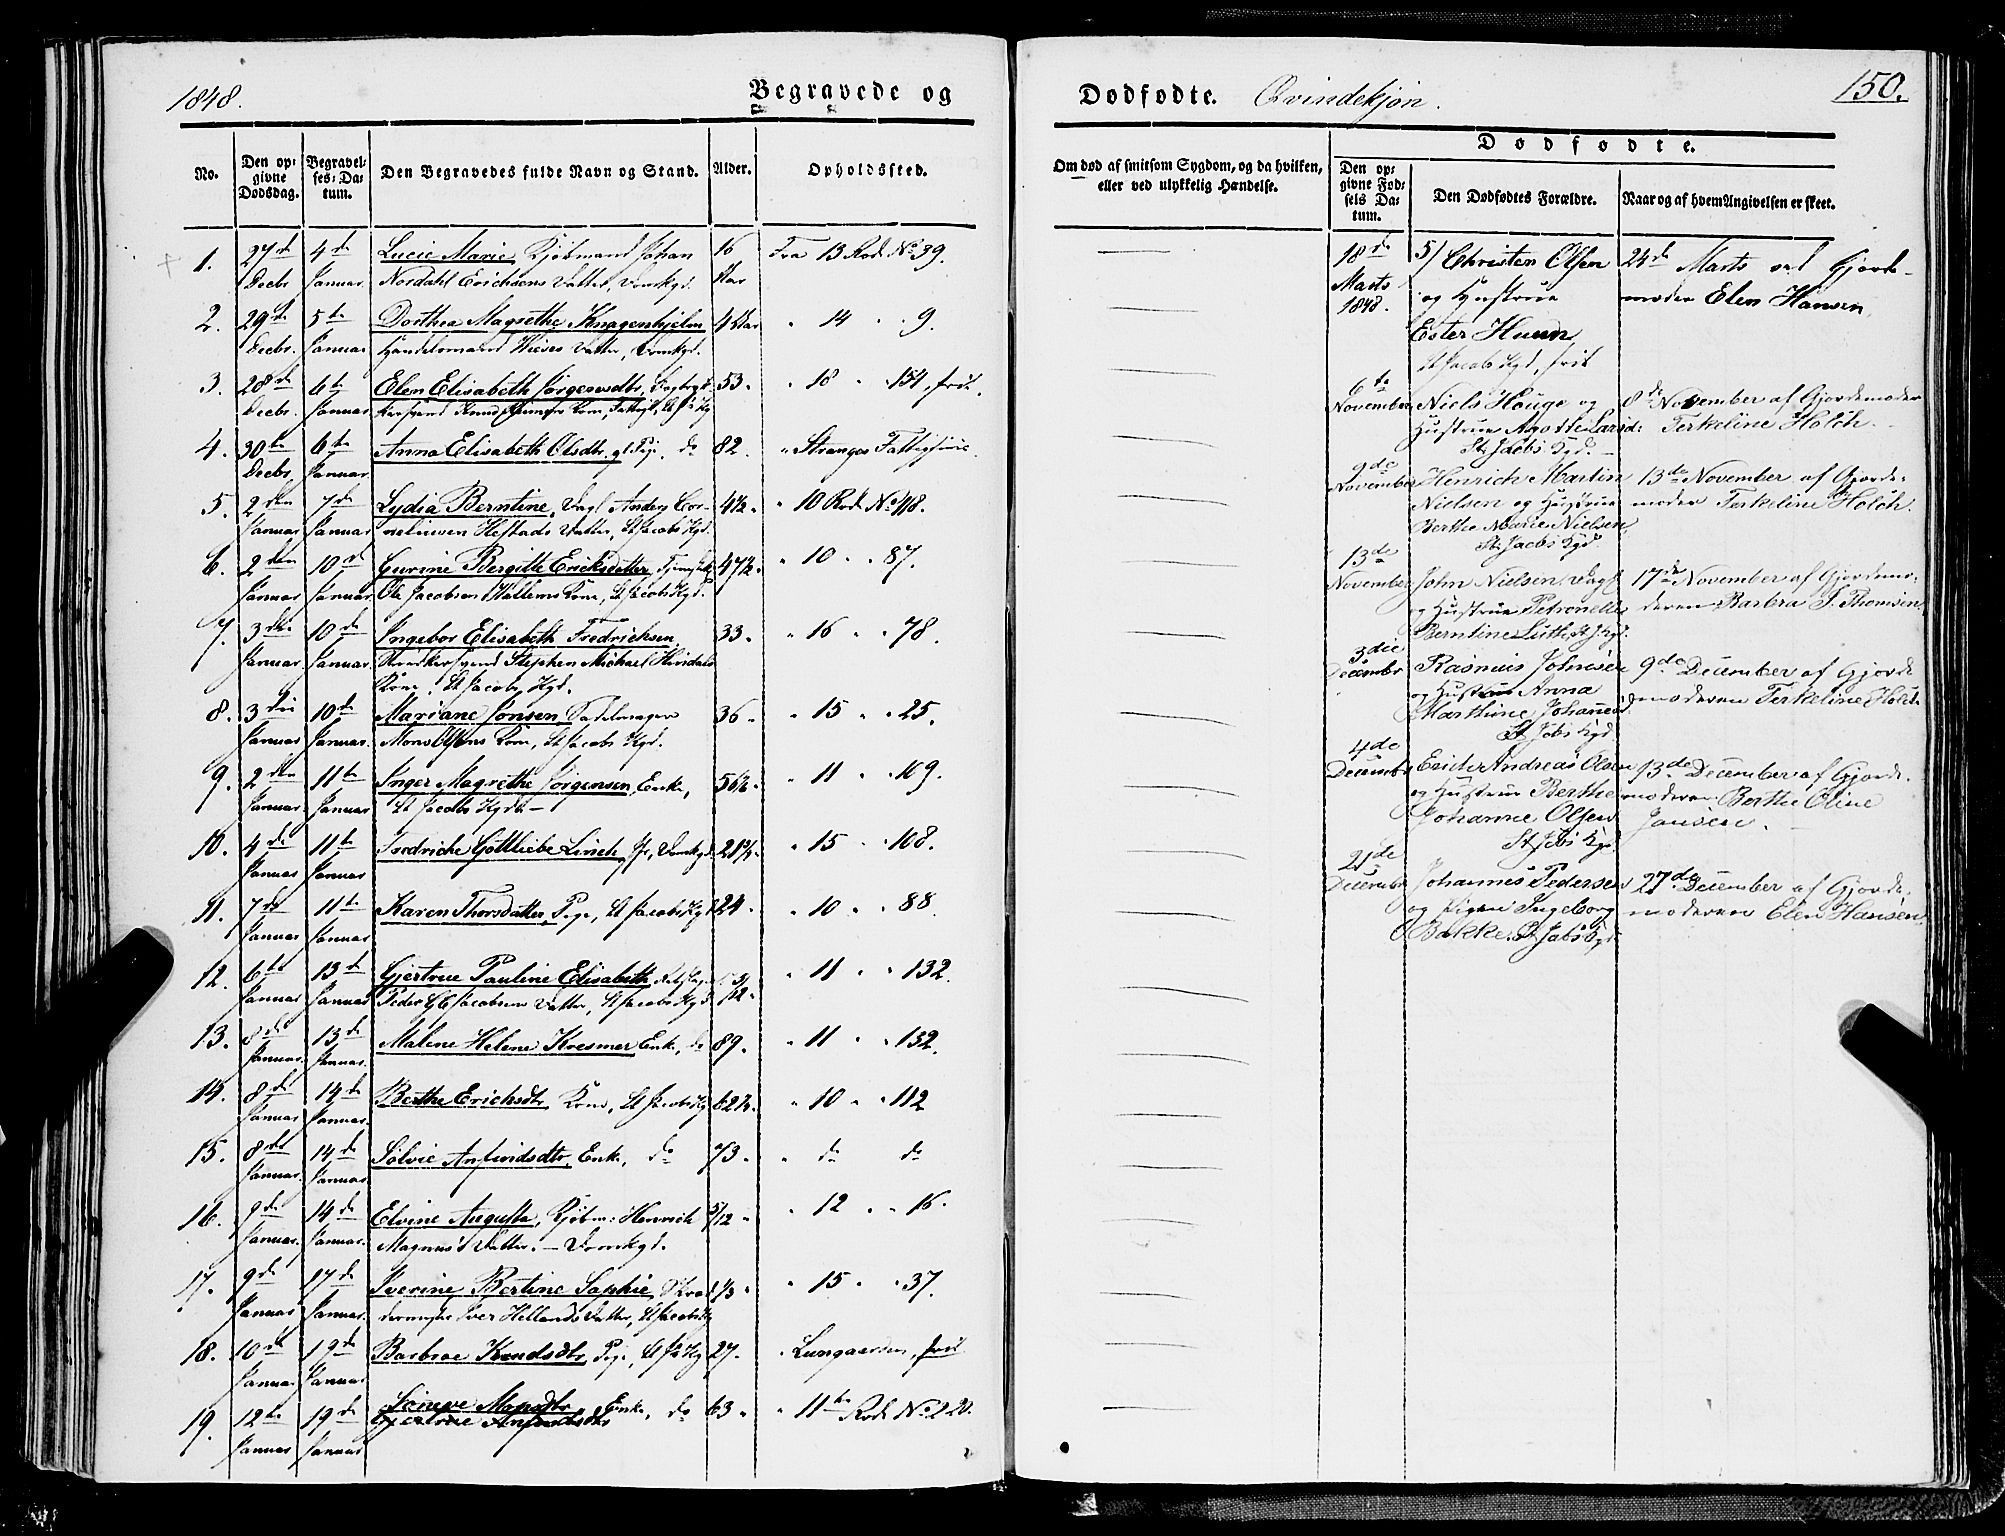 1848.
Begravede og
Dødfødte. Qvindekjøn.
150.
No.
Den opgivne Dødsdag.
Begravelses-Datum.
Den Begravedes fulde Navn og Stand.
Alder.
Opholdssted.
Om død af smitsom Sygdom, og da hvilken, eller ved ulykkelig Hændelse.
Dødfødte.
Den opgivne Fødsels Datum.
Den Dødfødtes Forældre.
Naar og af hvem Angivelsen er skeet.
1. 27de Decbr 4de Januar Lucie Marie, Kjøbmand Johan 16 Aar Fra 13 Rode No 39.
Nordahl Erichsens Datter, Domkgd.
2. 29de Decbr. 5te Januar Dorthea Magrethe Knagenhjelm 4 Aar " 14 " " 9.
Handelsmand Datter, Domkgd.
3. 28de Decbr. 6te Januar Elen Elisabeth Jørgensdtr, 53 " " 18 " " 154, frit.
Knud Kone, Fattigt, St Jb Kg
4. 30te Decbr 6te Januar Anna Elisabeth Olsdtr, gl Pige, do 82. " Stranges Fattighuus.
5. 2den Januar 7de Januar Lydia Berntine, Dagl Anders Cor- 4½ " " 10 Rode No 118.
neliusen Hestads Datter, St Jacobs Kgd.
6. 2den Januar 10de Januar Gurine Bergitte Ericksdatter, 47½ " " 10 " " 87.
Ole Jacobsen Hallems Kone, St Jacobs Kgd.
7. 3die Januar 10de Januar Ingebor Elisabeth Fredrichsen, 33 " " 16 " " 78.
Stephen Michael
Kone, St Jacobs Kgd.
8. 3die Januar 10de Januar Mariane Jonsen, Sadelmager 36 " " 15 " " 25.
Mons Olsens Kone, St Jacobs Kgd.
9. 2den Januar 11te Januar Inger Magrethe Jørgensen, Enke, 56½ " " 11 " " 169.
St Jacobs Kgd.
10. 4de Januar 11te Januar Fredriche Gottliebe Linch, Pe, Domkgd " 15 " " 108.
11. 7de Januar 11te Januar Karen Thorsdatter, Pige, St Jacobs Kg 24 " " 10 " " 88.
12. 6te Januar 13de Januar Gjertrue Pauline Elisabeth, " 11 " " 132.
Peder Jacobsens Datter, St Jacobs Kgd
13. 8de Januar. 13de Januar. Malene Helene Kresmer, Enke, do 89. " 11 " " 132.
14. 8de Januar 14de Januar. Berthe Erichsdtr, Kone, St Jacobs Kg 62½ " " 10 " " 112
15. 8de Januar. 14de Januar. Sølvie Anfindsdtr, Enke, do 73 " " do do
16. 9de Januar. 14de Januar. Elvine Augusta, Kjøbm: Henrich 5/12 " " 12 " " 16.
Magnus's Datter. – Domkgd.
17. 9de Januar. 17de Januar. Iverine Bertine Sophie, " 15 " " 37.
Iver Hellands Datter, St Jacobs Kg
18. 10de Januar 19de Januar Barbroe Knudsdtr, Pige, St Jb Kg 27. " Lungaarden, frit
19. 12te Januar 19de Januar Monsdtr, Enke, do 63 " " 11te Rode No 220.
Gjertrue Anfindsdtr
18de Marts 1848. 5) Christen Olsen 24de Marts ved Gjorde-
og Hustrue moder Elen Hansen.
Ester Huun
St Jacobs Kgd, frit
6te November Niels Houge og 8de November af Gjordemoder
Hustrue Agotte Larsd: Terkeline Holch.
St: Jacobs Kgd. –
9de November Henrich Martin 13de November af Gjorde-
Nielsen og Hustrue moder Terkeline Holch.
Berthe Marie Nielsen
St: Jacobs Kgd.
13de November John Nielsen Dagl 17de November af Gjordemo-
og Hustrue Petronelle deren Barbra T. Thomsen
Berntine Luth, St J. Kgd.
3die December Rasmus Johnsen 9de December af Gjorde
og Hustrue Anna moderen Terkeline Holch
Marthine Johannesd.
St Jobs Kgd
4de December Erich Andreas Olsen 13de December af Gjorde-
og Hustrue Berthe moderen Berthe Oline
Johanne Olsen Jansen. –
St Jobs Kgd
21de December Johannes Pedersen 27de December af Gjorde-
og Pigen Ingeborg moderen Elen Hansen.
O Bakke. St Jabs Kgd